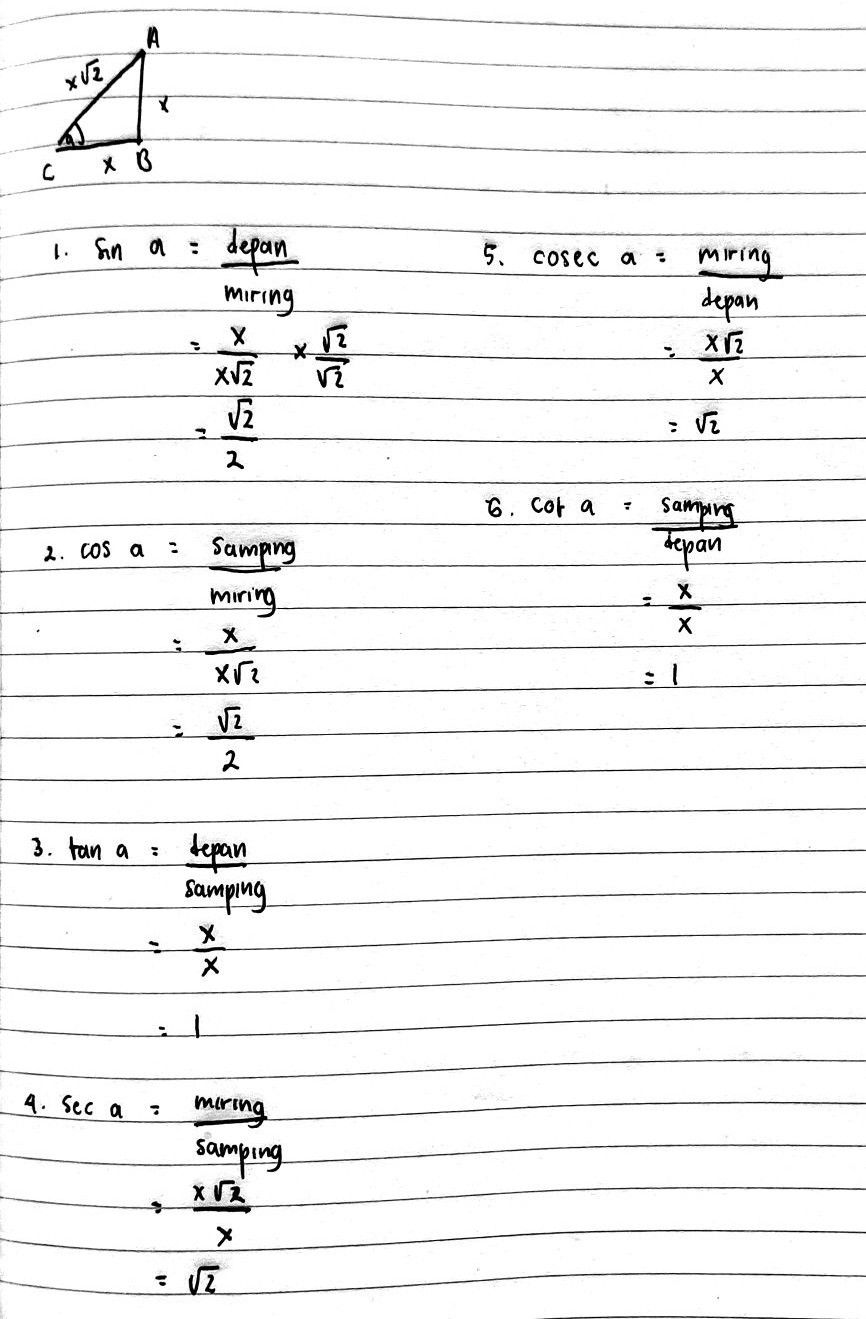 A
x√2
x
a
C
x
B
1. Sin a = depan
miring
= x/x√2 × √2/√2
= √2/2
2. cos a = Samping
miring
= x/x√2
= √2/2
3. tan a = depan
samping
= x/x
= 1
4. sec a = miring
samping
= x√2/x
= √2
5. cosec a = miring
depan
= x√2/x
= √2
6. cot a = samping
depan
= x/x
= 1